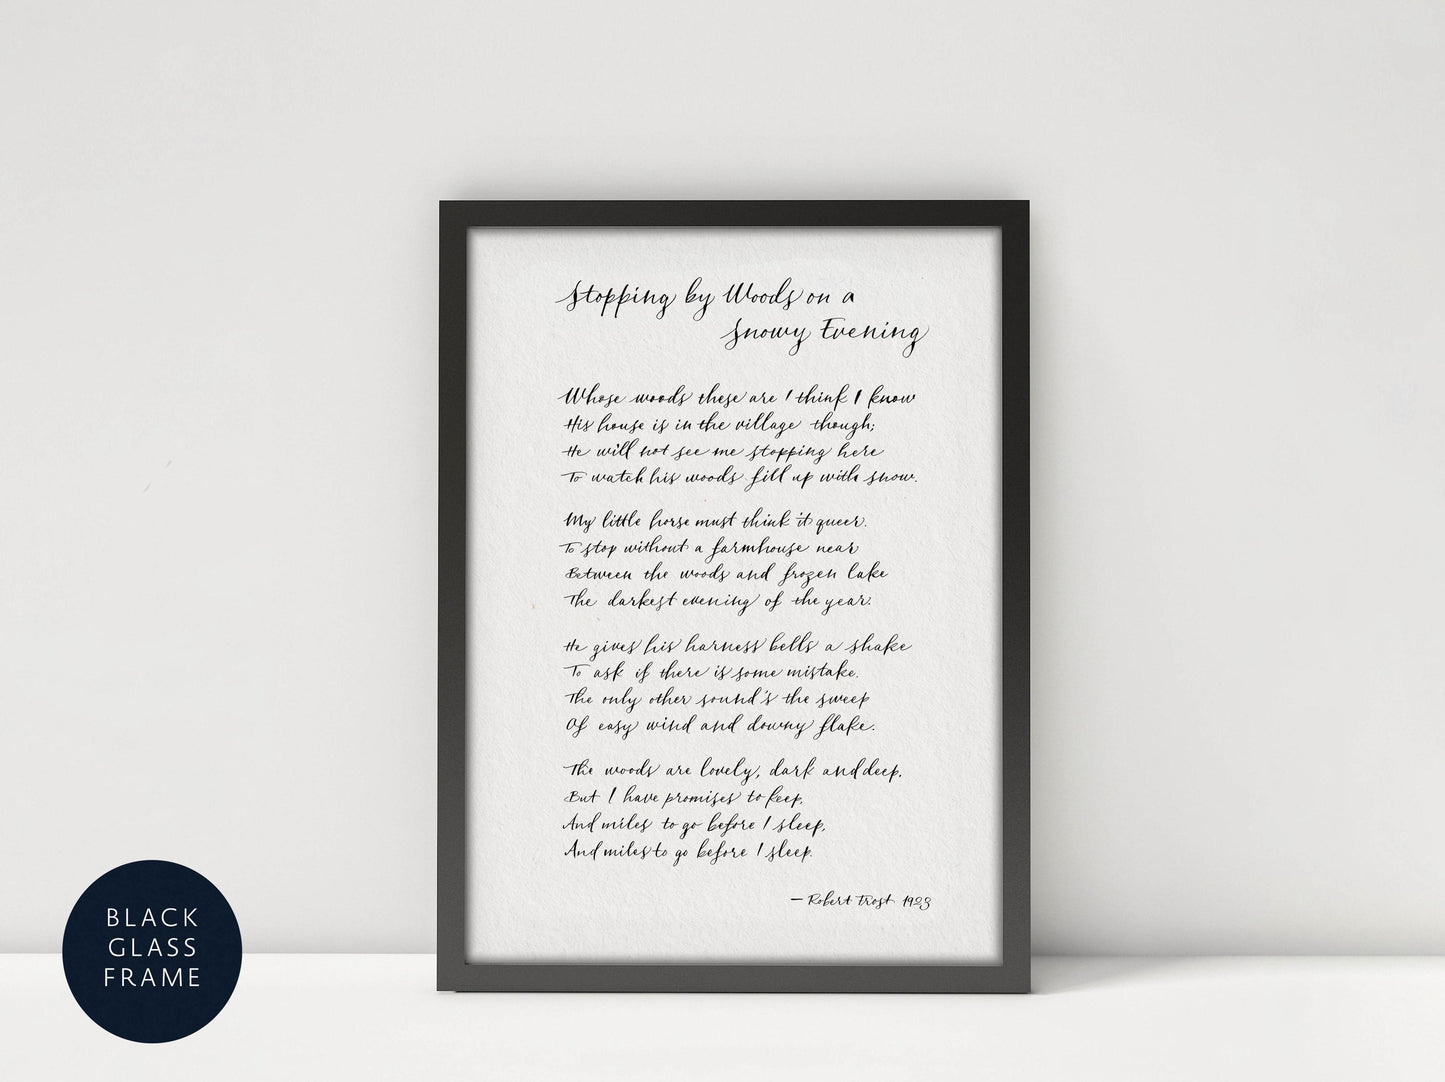 Stopping by Woods on a
Snowy Evening
Whose woods these are I think I know
His house is in the village though;
He will not see me stopping here
To watch his woods fill up with snow.
My little horse must think it queer.
To stop without a farmhouse near
Between the woods and frozen lake
The darkest evening of the year.
He gives his harness bells a shake
To ask if there is some mistake.
The only other sound's the sweep
Of easy wind and downy flake.
The woods are lovely, dark and deep.
But I have promises to keep,
And miles to go before I sleep,
And miles to go before I sleep.
— Robert Frost 1923
BLACK
GLASS
FRAME